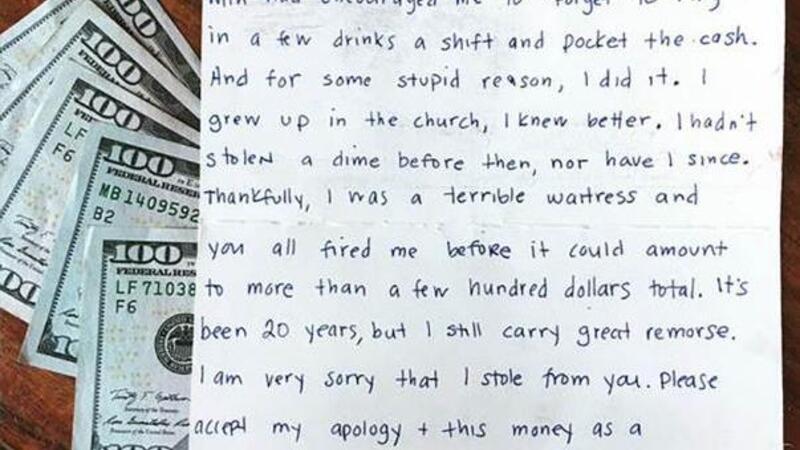 100
100
100
LF
F6
100
FEDERAL RESER
MB 1409592
B2
100
FEDERAL RES
LF 71038
F6
100
encouraged me to forget to ring
in a few drinks a shift and pocket the cash.
And for some stupid reason, I did it. I
grew up in the church, I knew better. I hadn't
stolen a dime before then, nor have I since.
Thankfully, I was a terrible waitress and
you all fired me before it could amount
to more than a few hundred dollars total. It's
been 20 years, but I still carry great remorse.
I am very sorry that I stole from you. Please
accept my apology + this money as a